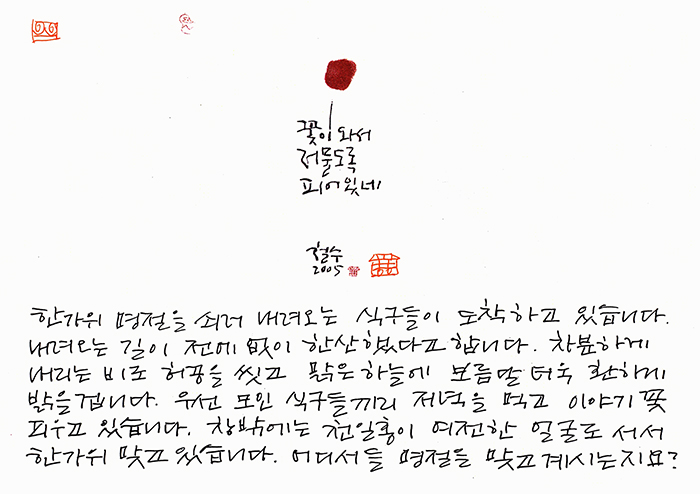 꽃이 와서
저물도록
피어있네
철수
2005
한가위 명절을 쇠러 내려오는 식구들이 도착하고 있습니다.
내려오는 길이 전에 없이 한산했다고 합니다. 차분하게
내리는 비로 허공을 씻고 맑은 하늘에 보름달 더욱 환하게
밝을겁니다. 우선 모인 식구들끼리 저녁을 먹고 이야기 꽃
피우고 있습니다. 창밖에는 천일홍이 여전한 얼굴로 서서
한가위 맞고 있습니다. 어디서들 명절을 맞고 계시는지요?